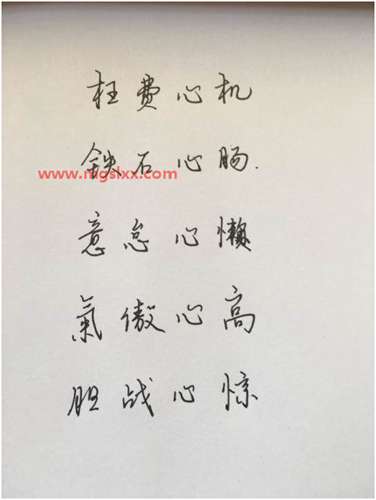 枉费心机
鉄石心肠.
www.mgslxx.com
意怠心懒
氣傲心高
胆战心惊